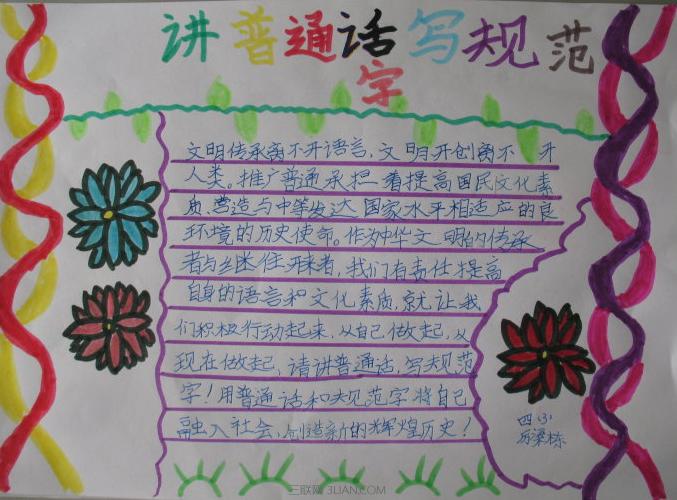 讲普通话写规范
字
文明传承离不开语言，文明开创离不开
人类。推广普通承担着提高国民文化素
质，营造与中等发达国家水平相适应的良
环境的历史使命。作为中华文明的传承
者与继任开来者，我们有责任提高
自身的语言和文化素质，就让我
们积极行动起来，从自己做起，从
现在做起，请讲普通话，写规范
字！用普通话和规范字将自己
融入社会，创造新的辉煌历史！
四
栋
三联网 3LIAN.COM